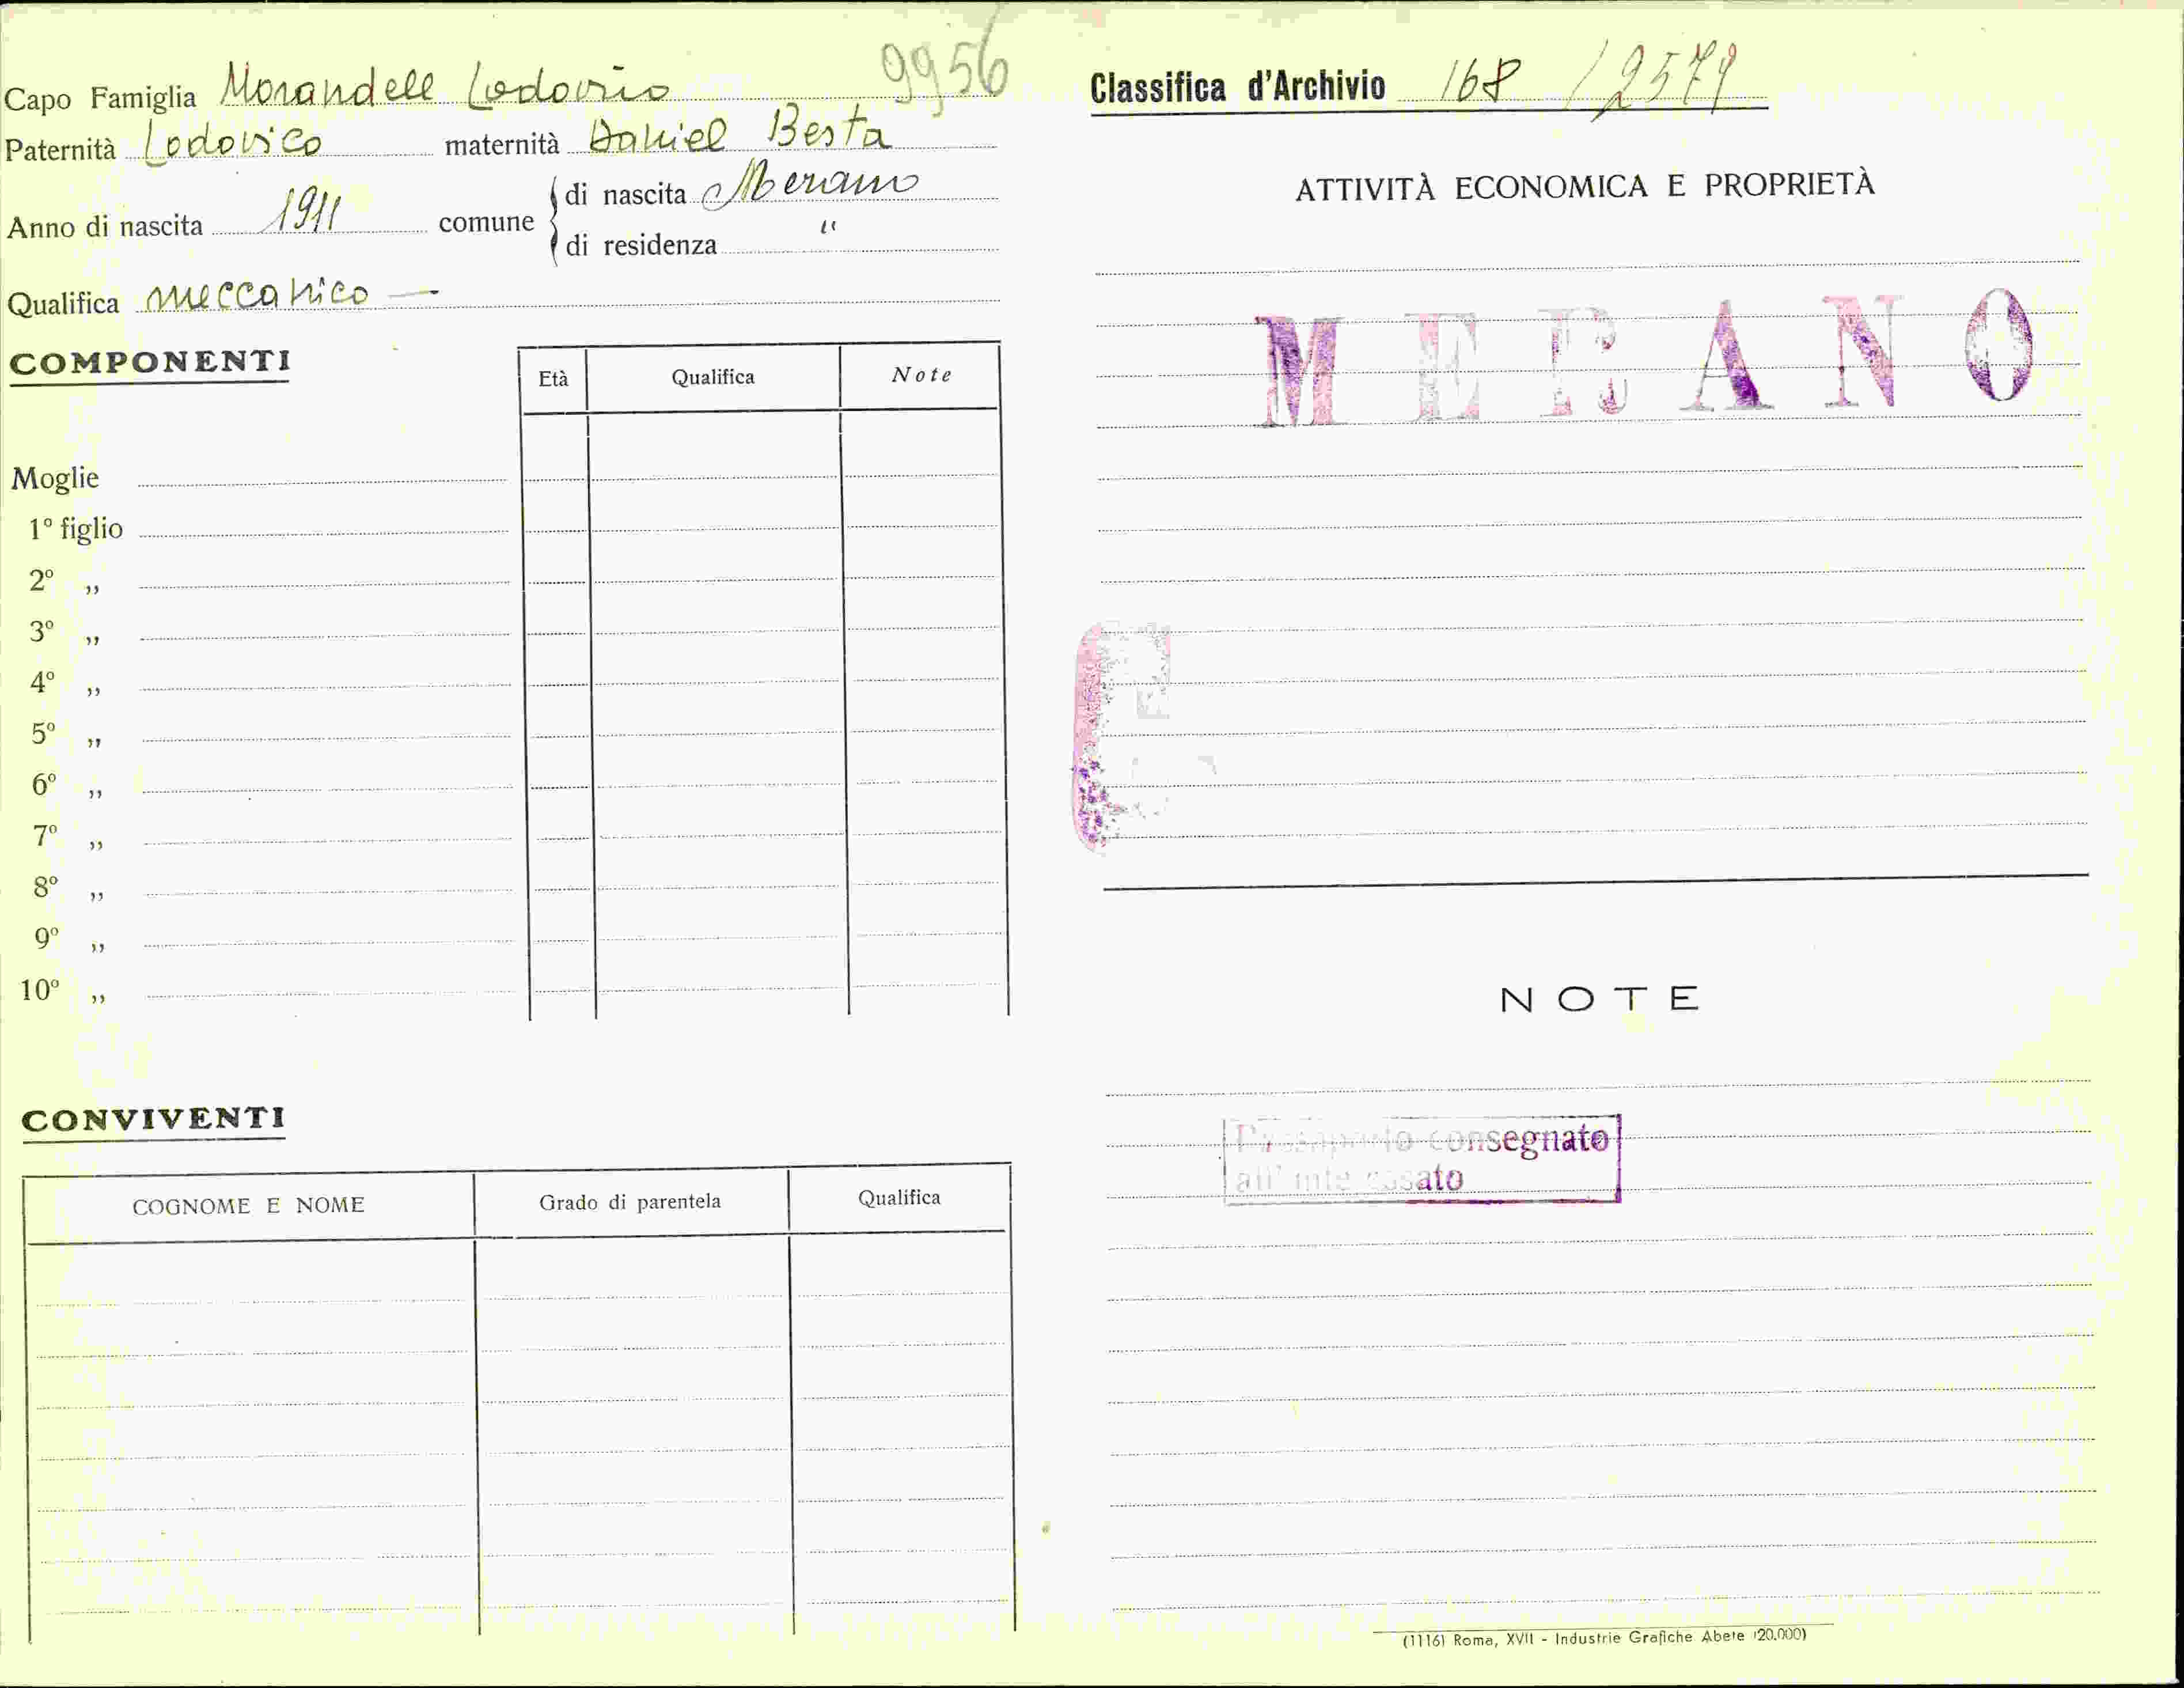 9956
Capo Famiglia Morandell Lodovico
Paternità Lodovico maternità Daniel Berta
Anno di nascita 1911 comune di nascita Merano
di residenza "
Qualifica meccanico —
COMPONENTI
Età Qualifica Note
Moglie
1º figlio
2º „
3º „
4º „
5º „
6º „
7º „
8º „
9º „
10º „
CONVIVENTI
COGNOME E NOME Grado di parentela Qualifica
Classifica d'Archivio 168 / 2579
ATTIVITÀ ECONOMICA E PROPRIETÀ
MERANO
NOTE
Passaporto consegnato
all'interessato
(1116) Roma, XVII - Industrie Grafiche Abete (20.000)